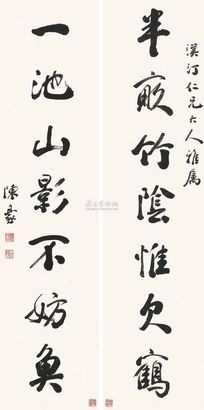 半畝竹陰惟欠鶴
漢汀仁兄大人雅屬
一池山影不妨魚
陳豪